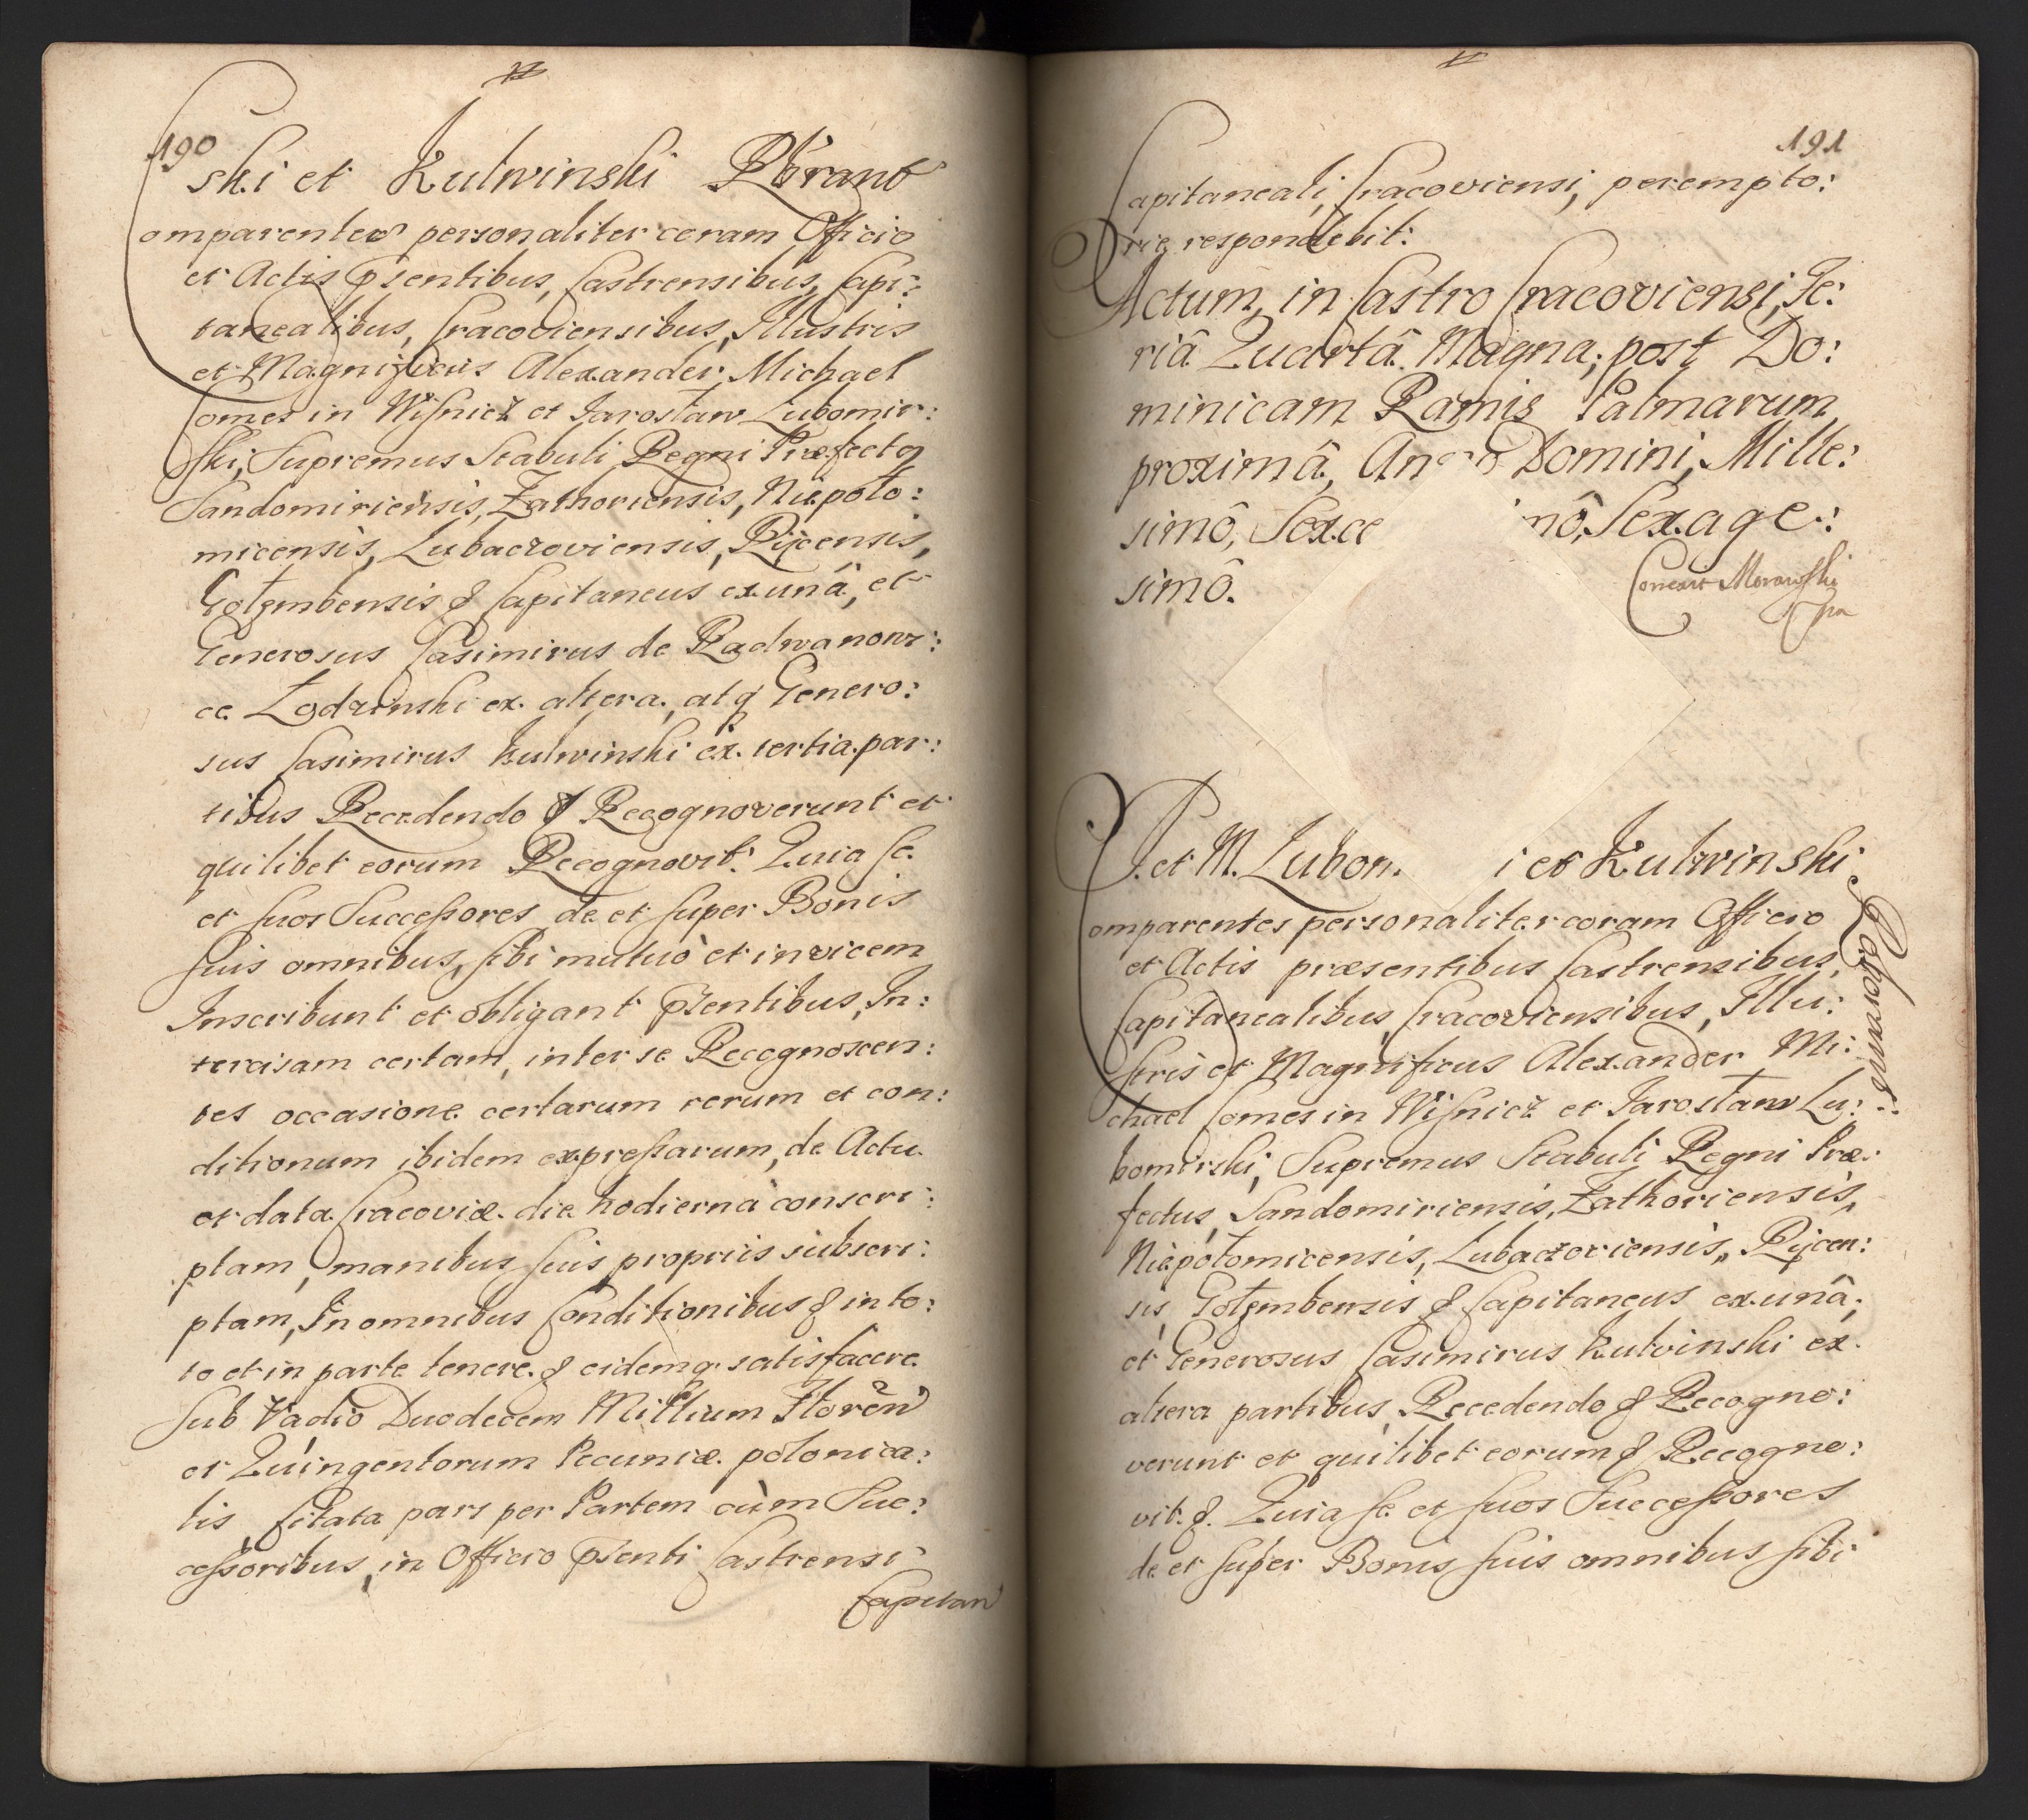 190
ski et Kulwinski Rbrant
omparentes personaliter coram Officio
et Actis pñtibus, Castrensibus, Capi:
tanealibus, Cracoviensibus, Illustris
et Magnificus Alexander Michael
Comes in Wisnicz et Jarosław Lubomir:
ski, Supremus Stabuli Regni Præfectg
Sandomiriensis, Zathoriensis, Niepoło:
micensis, Lubaczoviensis, Rycensis,
Gołembensis & Capitaneus ex unâ, et
Generosus Casimirus de Radwanowi:
ce Łodzinski ex altera, atq Genero:
sus Casimirus Kulwinski ex tertia par:
tibus Recedendo & Recognoverunt et
quilibet eorum Recognovit. Quia se
et suos Successores de et super Bonis
suis omnibus, sibi mutuò et invicem
Inscribunt et obligant pñtibus, In:
tercisam certam, inter se Recognoscen:
tes occasione certarum rerum et con:
ditionum ibidem expressarum, de Actu
et data Cracoviæ die hodierna conscri:
ptam, manibus suis propriis subscri:
ptam, In omnibus Conditionibus & in to:
to et in parte tenere & eidemq satisfacere
Sub Vadio Duodecem Millium Floren
et Quingentorum Pecuniæ polonica:
lis, Citata pars per Partem cùm Suc:
cessoribus, in Officio pñti Castrensi
Capitan
191
Capitaneali, Cracoviensi, perempto:
rie respondebit:
Actum in Castro Cracoviensi, Fe:
riâ Quartâ Magna, post Do:
minicam Ramis Palmarum
proximâ, Anno Domini, Mille:
simô, Sexce nô, Sexage:
simô.
Concor Morawski
I. et M. Lubom i et Kulwinski
Roborant
omparentes personaliter coram Officio
et Actis præsentibus Castrensibus,
Capitanealibus, Cracoviensibus, Illu:
stris et Magnificus Alexander Mi:
chael Comes in Wisnicz et Jarosław Lu:
bomirski, Supremus Stabuli Regni Præ:
fectus, Sandomiriensis, Zathoriensis,
Niepołomicensis, Lubaczoviensis, Rycen:
sis, Gołembensis & Capitaneus ex unâ,
et Generosus Casimirus Kulwinski ex
altera partibus Recedendo & Recogno:
verunt et quilibet eorum & Recogno:
vit &. Quia se et suos Successores
de et super Bonis suis omnibus sibi